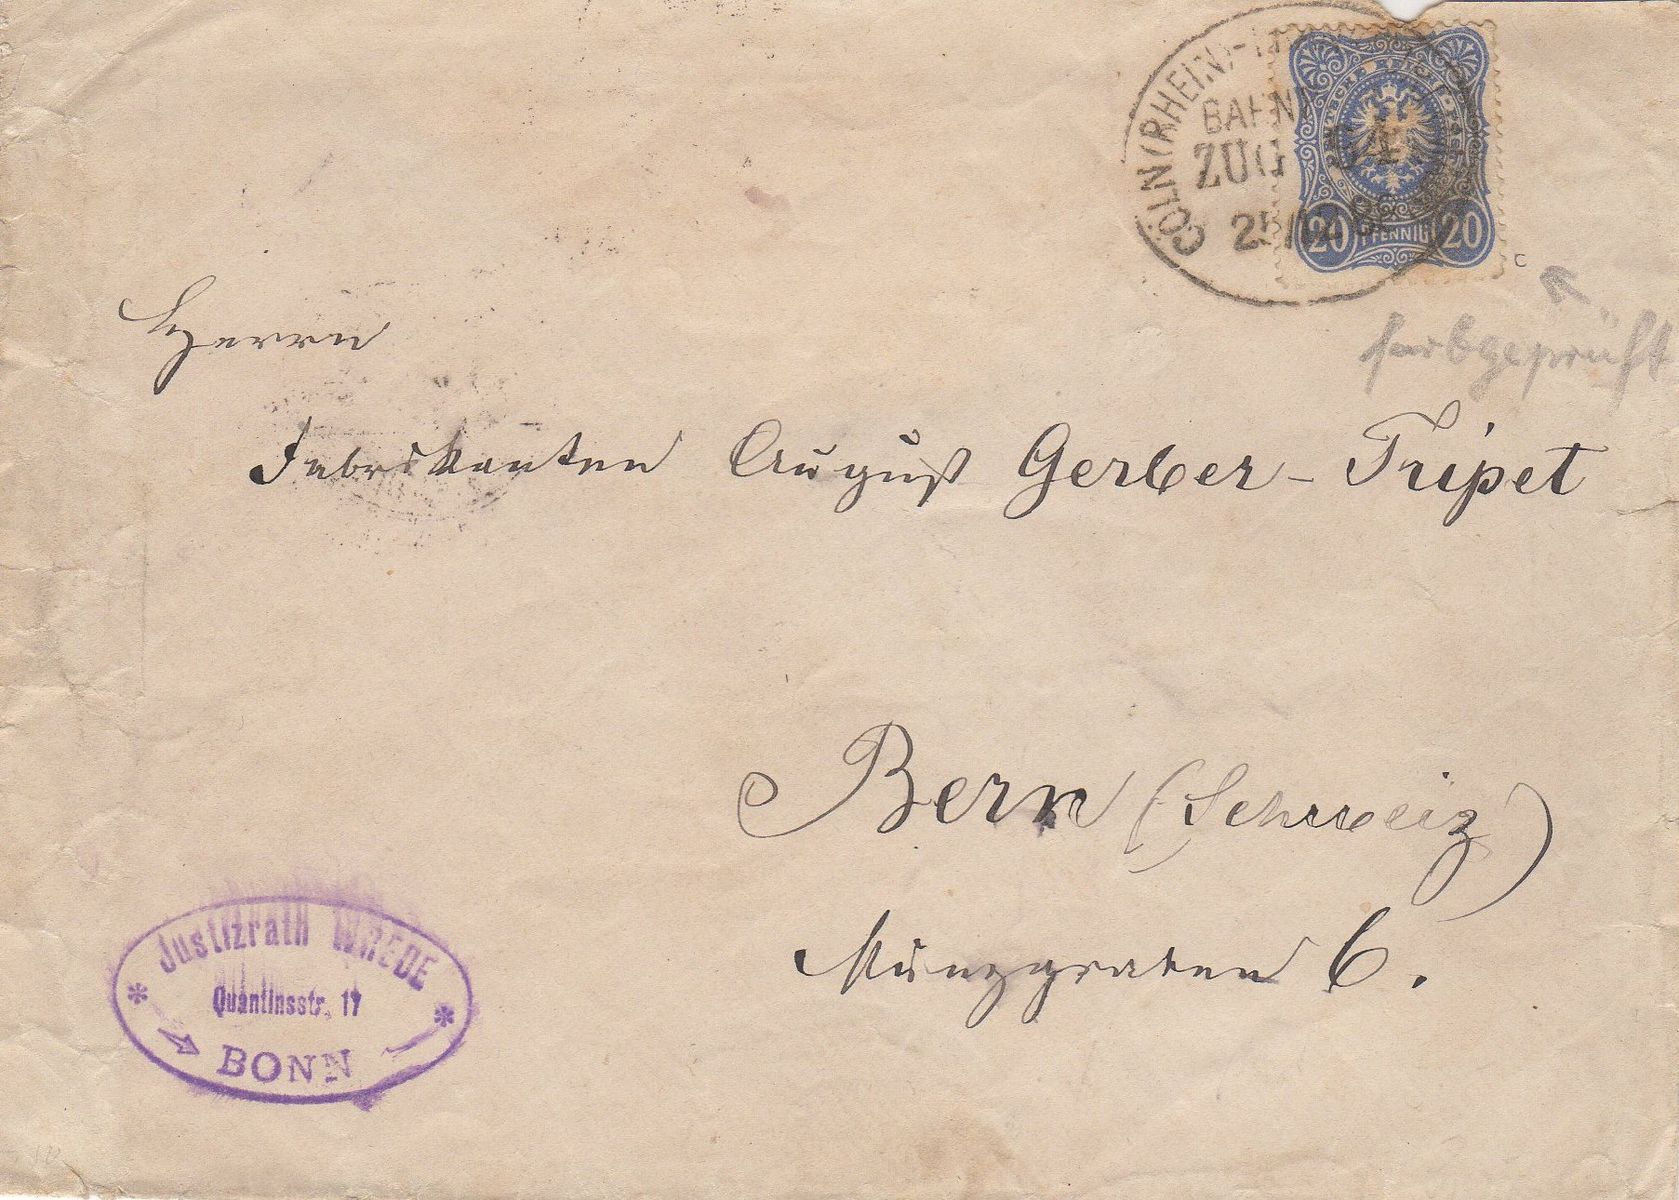 CÖLN (RHEIN)
BAHN
ZUG
25
DEUTSCHE REICHS-POST
20 PFENNIG 20
c
farbgeprüft
Herrn
Fabrikanten August Gerber-Tripet
Bern (Schweiz)
Münzgraben 6.
Justizrath WREDE
Quantinsstr. 17
BONN